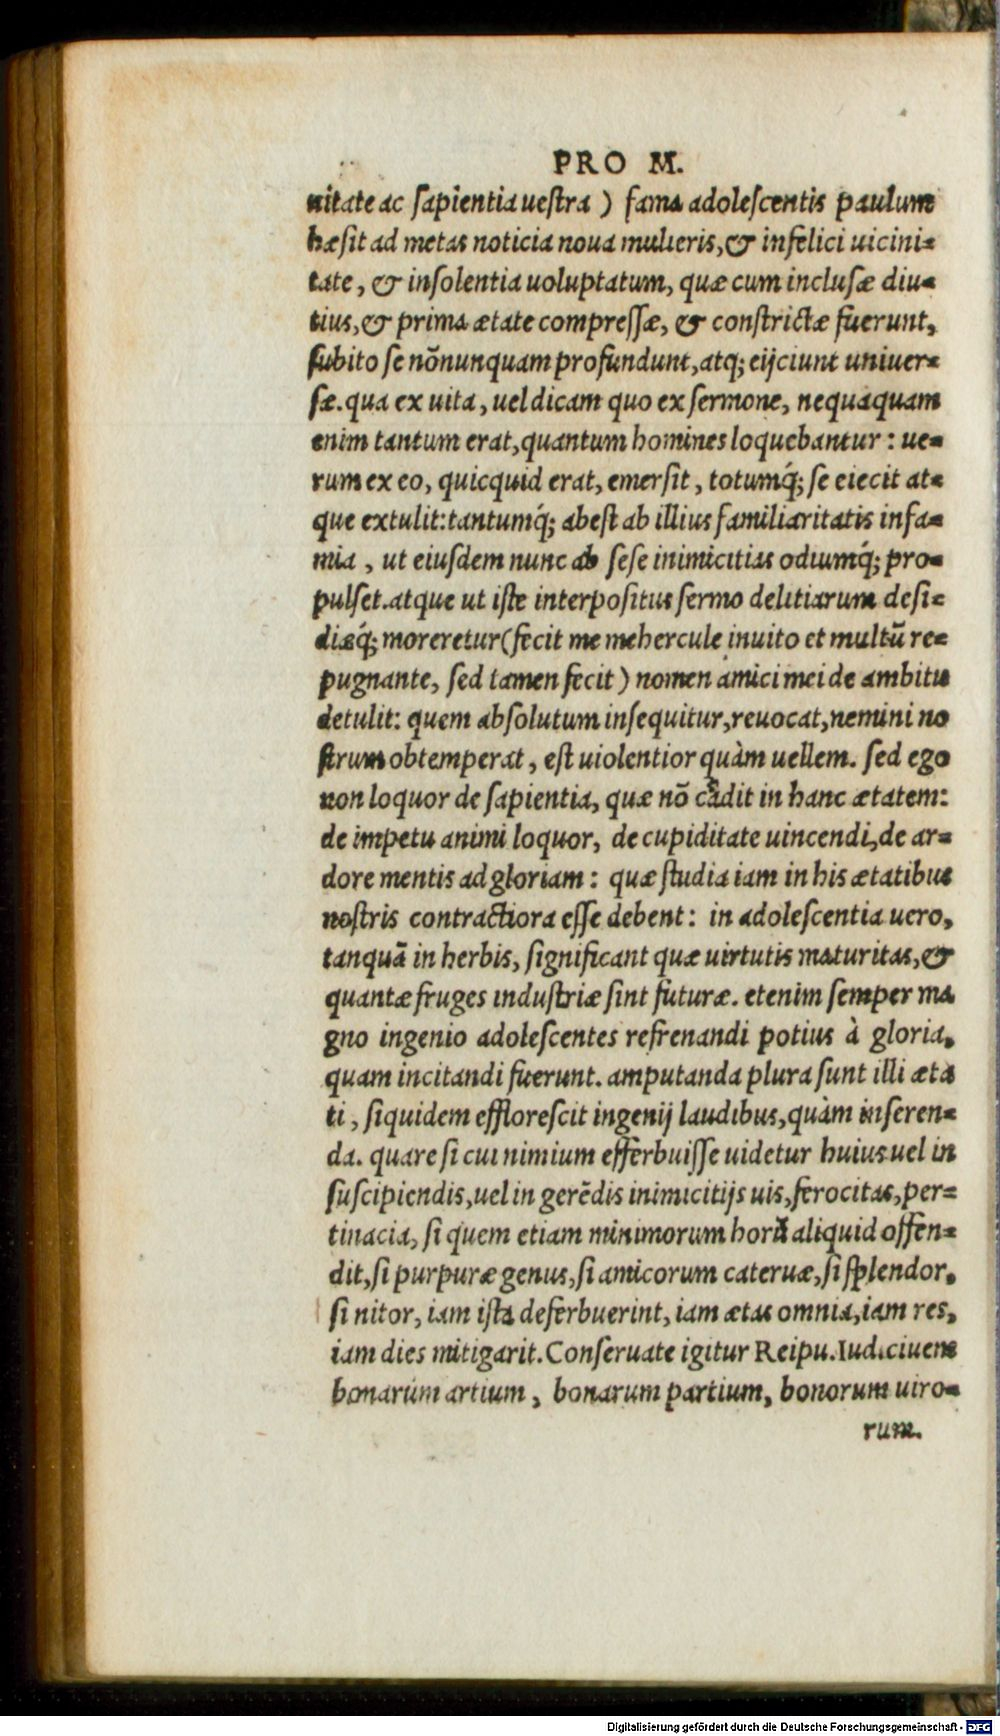 PRO M.
nitate ac sapientia uestra ) fama adolescentis paulum
hæsit ad metas noticia noua mulieris,& infelici uicini-
tate, & insolentia uoluptatum, quæ cum inclusæ diu-
tius,& prima ætate compressæ, & constrictæ fuerunt,
subito se nōnunquam profundunt,atq; eijciunt uniuer-
sæ.qua ex uita, uel dicam quo ex sermone, nequaquam
enim tantum erat,quantum homines loquebantur : ue-
rum ex eo, quicquid erat, emersit, totumq́; se eiecit at-
que extulit:tantumq́; abest ab illius familiaritatis infa-
mia , ut eiusdem nunc ab sese inimicitias odiumq́; pro-
pulset.atque ut iste interpositus sermo delitiarum desi-
diæq́; moreretur(fecit me mehercule inuito et multū re-
pugnante, sed tamen fecit ) nomen amici mei de ambitu
detulit: quem absolutum insequitur,reuocat,nemini no
strum obtemperat, est uiolentior quàm uellem. sed ego
non loquor de sapientia, quæ nō cadit in hanc ætatem:
de impetu animi loquor, de cupiditate uincendi,de ar-
dore mentis ad gloriam : quæ studia iam in his ætatibus
nostris contractiora esse debent: in adolescentia uero,
tanquā in herbis, significant quæ uirtutis maturitas,&
quantæ fruges industriæ sint futuræ. etenim semper ma
gno ingenio adolescentes refrenandi potius à gloria,
quam incitandi fuerunt. amputanda plura sunt illi æta
ti, siquidem efflorescit ingenij laudibus,quàm inseren-
da. quare si cui nimium efferbuisse uidetur huius uel in
suscipiendis,uel in gerēdis inimicitijs uis,ferocitas,per-
tinacia, si quem etiam minimorum horū aliquid offen-
dit,si purpuræ genus,si amicorum cateruæ,si splendor,
si nitor, iam ista deferbuerint, iam ætas omnia,iam res,
iam dies mitigarit.Conseruate igitur Reipu.Iudiciuem
bonarum artium , bonarum partium, bonorum uiro-
rum.
Digitalisierung gefördert durch die Deutsche Forschungsgemeinschaft - DFG